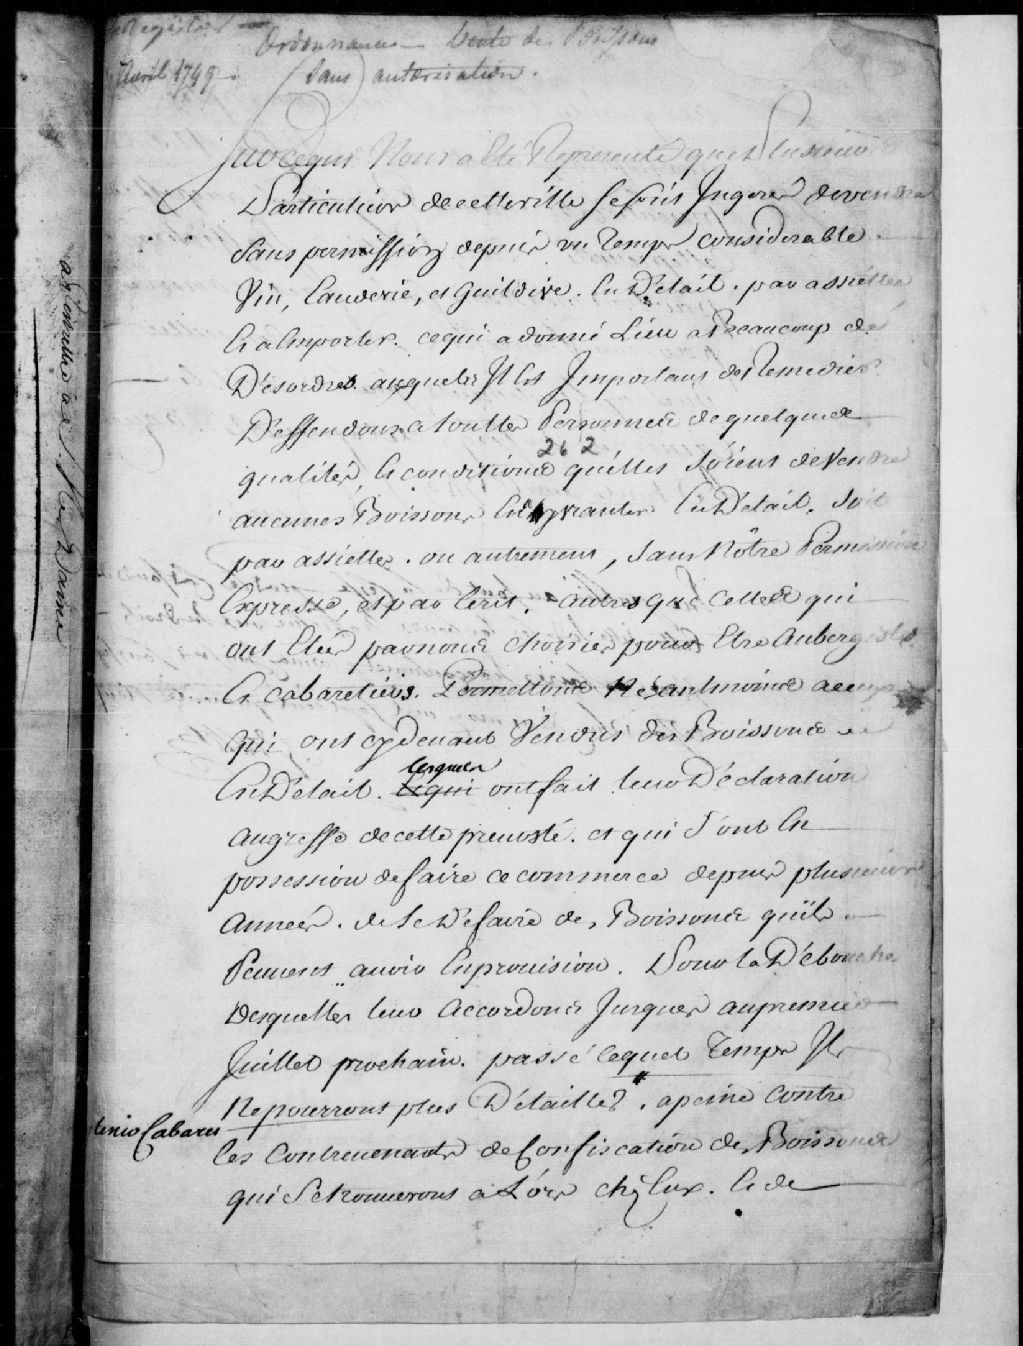 Registre
Ordonnance - Vente des Boissons
Avril 1749.
(sans) autorisation.
Surcequi Nous a Eté Representé que Plusieurs
Particuliers decetteville se sont Ingerés devendre
sans permission depuis un Temps considerable
Vin, Eaudevie, et Guildive. En Détail. par assiettes
Et a Emporter. cequi a donné Lieu a Beaucoup de
Désordres. auxquels Il Est Important de Remedier
Deffendons a toutes Personnes de quelques
262
qualités, Et conditions quelles soient de Vendre
aucunes Boissons Enyvrantes En Détail. soit
par assiettes. ou autrement, sans Nôtre Permission
Expresse, et par Ecrit. autres que celles qui
ont Etés par nous choisies pour Etre Aubergistes
Et Cabaretiers. Permettons Néantmoins a ceux
qui ont cydevant Vendus des Boissons
lesquels
En Détail. Et qui ont fait leur Déclaration
au greffe de cette prevosté. et qui sont En
possession de faire ce commerce depuis plusieurs
années. de se Défaire des Boissons quils
Peuvent avoir En provision. Pour le Débouché
Desquelles leur Accordons Jusques au premier
Juillet prochain. passé lequel Temps Ils
Ne pourront plus Détailler. a peine contre
tenir Cabaret
les Contrevenants de Confiscation des Boissons
qui se trouverons a Lors chez Eux. Et de